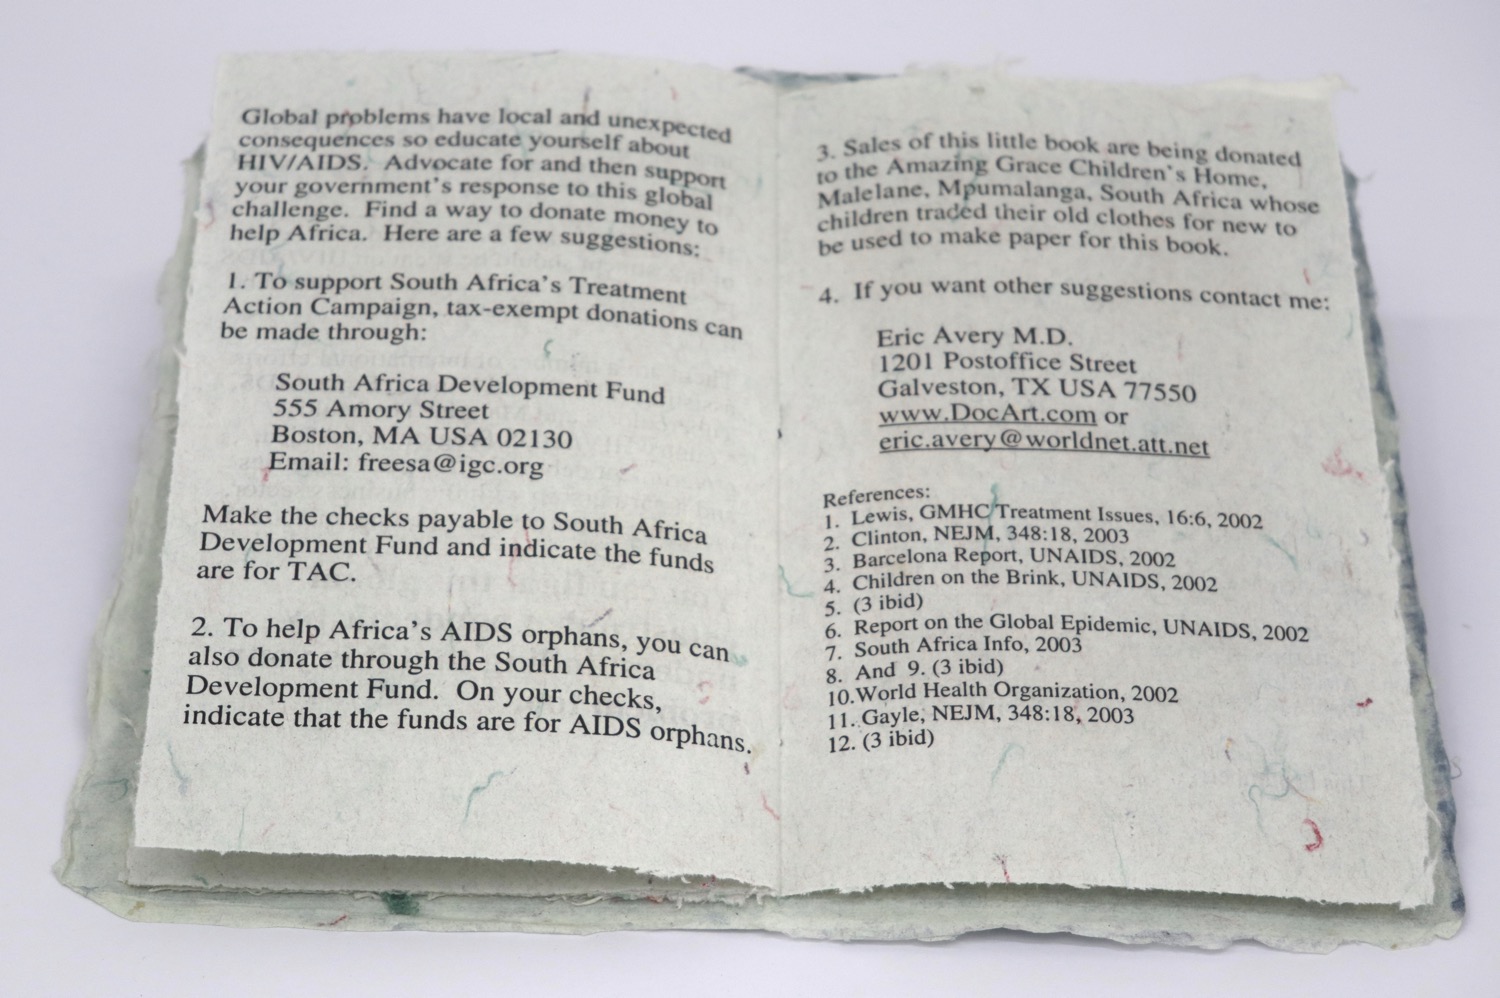 Global problems have local and unexpected
consequences so educate yourself about
HIV/AIDS. Advocate for and then support
your government's response to this global
challenge. Find a way to donate money to
help Africa. Here are a few suggestions:
1. To support South Africa's Treatment
Action Campaign, tax-exempt donations can
be made through:
South Africa Development Fund
555 Amory Street
Boston, MA USA 02130
Email: freesa@igc.org
Make the checks payable to South Africa
Development Fund and indicate the funds
are for TAC.
2. To help Africa's AIDS orphans, you can
also donate through the South Africa
Development Fund. On your checks,
indicate that the funds are for AIDS orphans.
3. Sales of this little book are being donated
to the Amazing Grace Children's Home,
Malelane, Mpumalanga, South Africa whose
children traded their old clothes for new to
be used to make paper for this book.
4. If you want other suggestions contact me:
Eric Avery M.D.
1201 Postoffice Street
Galveston, TX USA 77550
www.DocArt.com or
eric.avery@worldnet.att.net
References:
1. Lewis, GMHC Treatment Issues, 16:6, 2002
2. Clinton, NEJM, 348:18, 2003
3. Barcelona Report, UNAIDS, 2002
4. Children on the Brink, UNAIDS, 2002
5. (3 ibid)
6. Report on the Global Epidemic, UNAIDS, 2002
7. South Africa Info, 2003
8. And 9. (3 ibid)
10.World Health Organization, 2002
11. Gayle, NEJM, 348:18, 2003
12. (3 ibid)